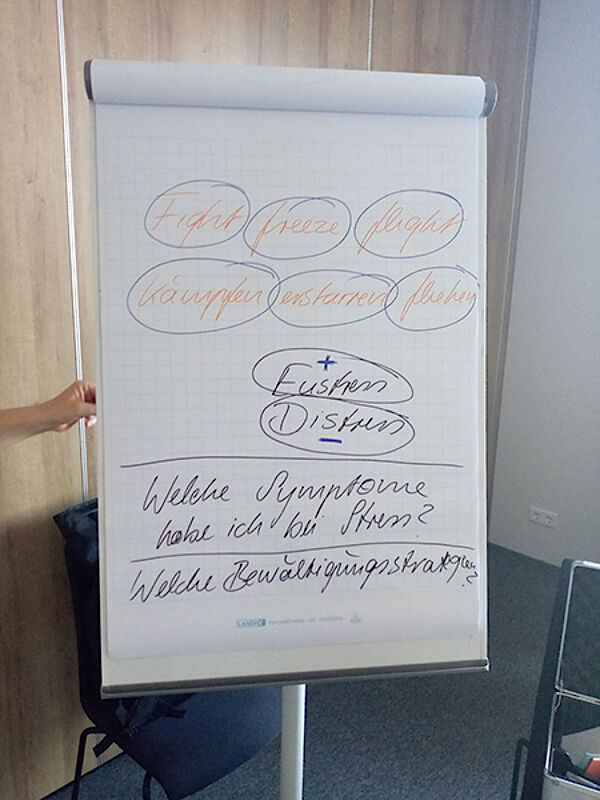 Fight freeze flight
kämpfen erstarren fliehen
+
Eustress
Distress
–
Welche Symptome
habe ich bei Stress?
Welche Bewältigungsstrategien?
LANDRÉ